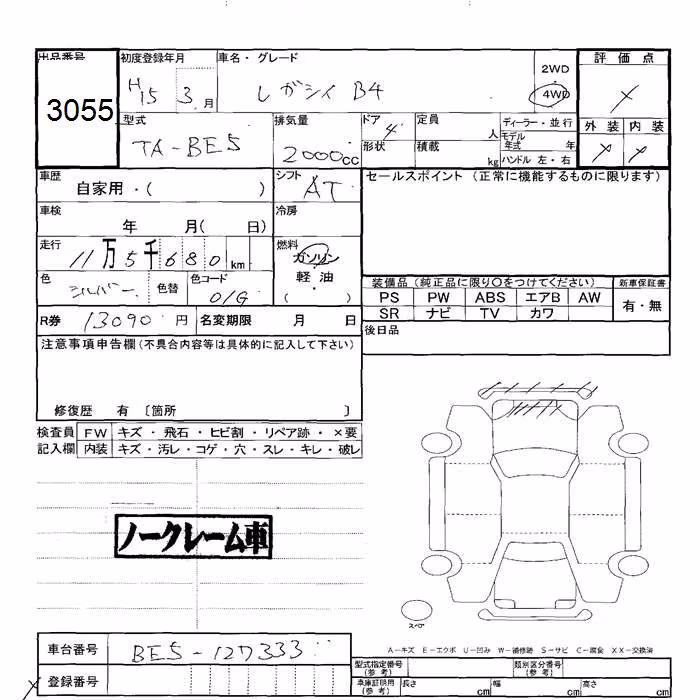 出品番号 初度登録年月 車名・グレード 2WD 評価点
3055 H15 3月 レガシィ B4 4WD ×
型式 排気量 ドア 4 定員 人 ディーラー・並行 外装 内装
TA-BE5 2000cc 形状 積載 kg モデル年式 年 × ×
ハンドル 左・右
車歴 自家用・( ) シフト AT セールスポイント (正常に機能するものに限ります)
車検 年 月( 日) 冷房
走行 11万5千680km 燃料 ガソリン
色 シルバー 色替 色コード 01G 軽油
( )
装備品(純正品に限り○をつけてください) 新車保証書
PS PW ABS エアB AW 有・無
SR ナビ TV カワ
R券 13090円 名変期限 月 日 後日品
注意事項申告欄(不具合内容等は具体的に記入して下さい)
修復歴 有 〔箇所 〕
検査員 FW キズ・飛石・ヒビ割・リペア跡・×要
記入欄 内装 キズ・汚レ・コゲ・穴・スレ・キレ・破レ
ノークレーム車
スペア
A-キズ E-エクボ U-凹み W-補修跡 S-サビ C-腐食 XX-交換済
車台番号 BE5-127333
登録番号
型式指定番号(参考) 類別区分番号(参考)
車庫証明用(参考) 長さ cm 幅 cm 高さ cm